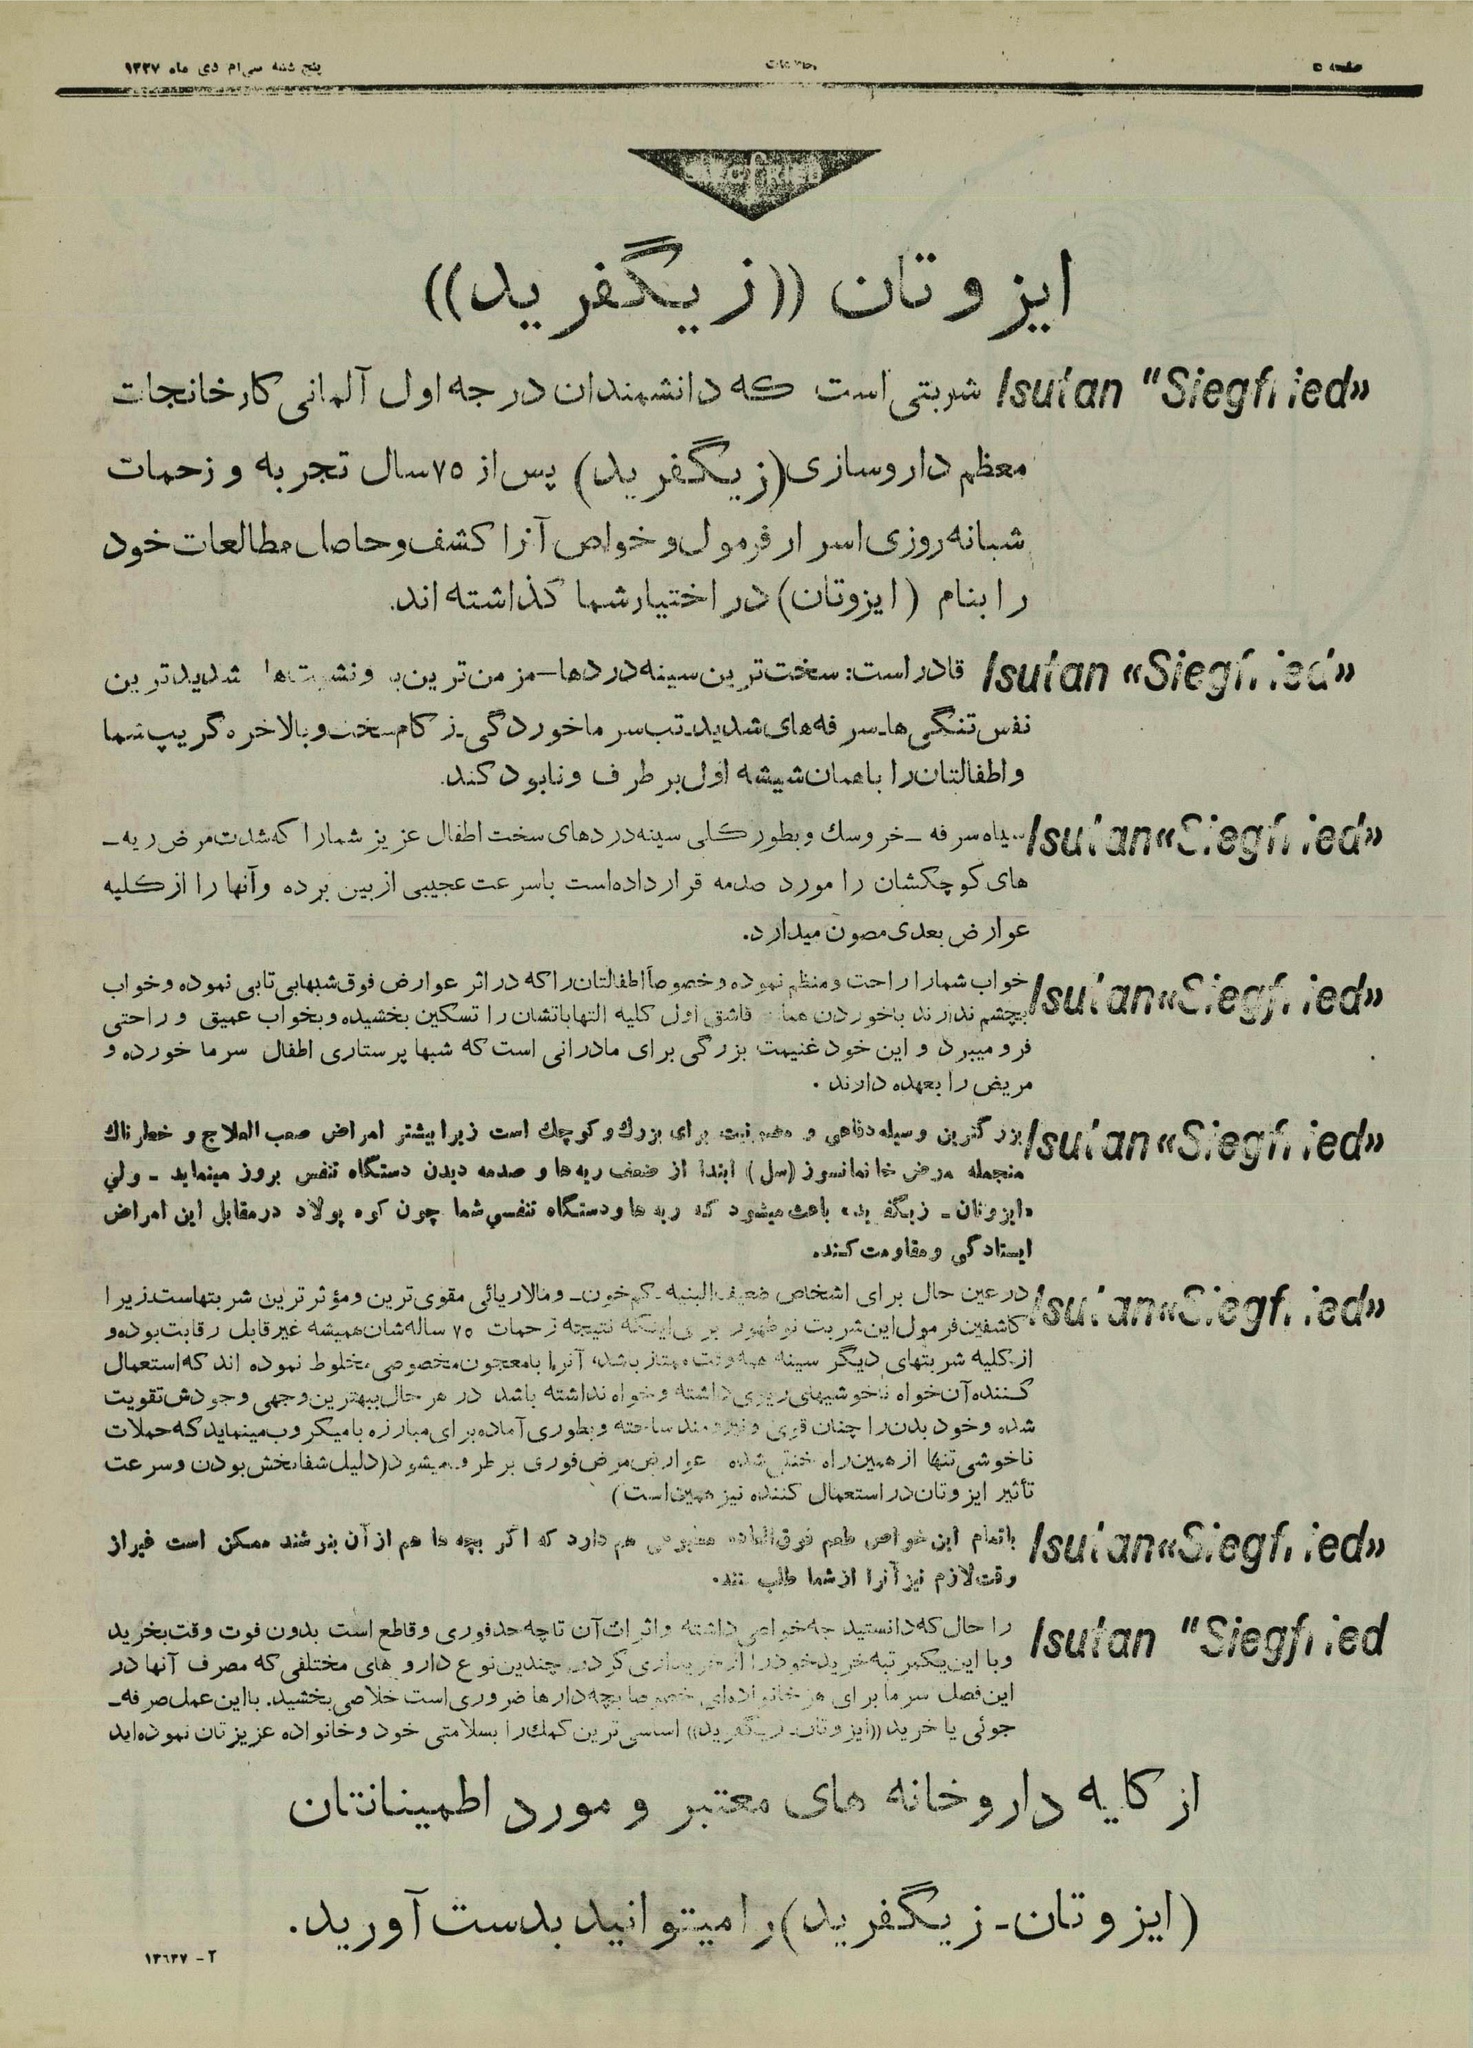 صفحه ۵
اطلاعات
پنج شنبه سی‌ام دی ماه ۱۳۲۷
SIEGFRIED
ایزوتان ((زیگفرید))
Isutan "Siegfried» شربتی است که دانشمندان درجه اول آلمانی کارخانجات
معظم داروسازی (زیگفرید) پس از ۷۵ سال تجربه و زحمات
شبانه روزی اسرار فرمول و خواص آنرا کشف و حاصل مطالعات خود
را بنام (ایزوتان) در اختیار شما گذاشته اند.
Isutan «Siegfried» قادر است: سخت‌ترین سینه دردها – مزمن ترین برونشیت‌ها شدیدترین
نفس تنگی ها ـ سرفه های شدید ـ تب سرماخوردگی ـ زکام سخت و بالاخره گریپ شما
و اطفالتان را با همان شیشه اول برطرف و نابود کند.
Isutan «Siegfried» سیاه سرفه – خروسك و بطور کلی سینه دردهای سخت اطفال عزیز شما را که شدت مرض ریه –
های کوچکشان را مورد صدمه قرار داده است با سرعت عجیبی از بین برده و آنها را از کلیه
عوارض بعدی مصون میدارد.
Isutan «Siegfried» خواب شما را راحت و منظم نموده و خصوصاً اطفالتان را که در اثر عوارض فوق شبها بی تابی نموده و خواب
بچشم ندارند با خوردن همان قاشق اول کلیه التهاباتشان را تسکین بخشیده و بخواب عمیق و راحتی
فرو میبرد و این خود غنیمت بزرگی برای مادرانی است که شبها پرستاری اطفال سرما خورده و
مریض را بعهده دارند.
Isutan «Siegfried» بزرگترین وسیله دفاعی و مصونیت برای بزرك و کوچك است زیرا بیشتر امراض صعب العلاج و خطرناك
منجمله مرض خانمانسوز (سل) ابتدا از ضعف ریه ها و صدمه دیدن دستگاه تنفس بروز مینماید – ولی
«ایزوتان – زیگفرید» باعث میشود که ریه ها و دستگاه تنفسی شما چون کوه پولاد در مقابل این امراض
ایستادگی و مقاومت کند.
Isutan «Siegfried» در عین حال برای اشخاص ضعیف البنیه ـ کم خون ـ و مالاریائی مقوی ترین و مؤثرترین شربتهاست زیرا
کاشفین فرمول این شربت نوظهور برای اینکه نتیجه زحمات ۷۵ ساله شان همیشه غیر قابل رقابت بوده و
از کلیه شربتهای دیگر سینه همه وقت ممتاز باشد، آنرا با معجون مخصوصی مخلوط نموده اند که استعمال
کننده آن خواه ناخوشیهای ریوی داشته و خواه نداشته باشد در هر حال ببهترین وجهی وجودش تقویت
شده و خود بدن را چنان قوی و نیرومند ساخته و بطوری آماده برای مبارزه با میکروب مینماید که حملات
ناخوشی تنها از همین راه خنثی شده عوارض مرض فوری برطرف میشود (دلیل شفابخش بودن و سرعت
تأثیر ایزوتان در استعمال کننده نیز همین است)
Isutan «Siegfried» با تمام این خواص طعم فوق العاده مطبوعی هم دارد که اگر بچه ها هم از آن بنوشند ممکن است غیر از
وقت لازم نیز آنرا از شما طلب کنند.
Isutan "Siegfried را حال که دانستید چه خواصی داشته و اثرات آن تا چه حد فوری و قاطع است بدون فوت وقت بخرید
و با این یکمرتبه خرید خود را از خریداری کردن چندین نوع داروهای مختلفی که مصرف آنها در
این فصل سرما برای هر خانواده‌ای خصوصا بچه دارها ضروری است خلاصی بخشید. با این عمل صرفه –
جوئی یا خرید ((ایزوتان – زیگفرید)) اساسی ترین کمك را بسلامتی خود و خانواده عزیزتان نموده اید
از کلیه داروخانه های معتبر و مورد اطمینانتان
(ایزوتان – زیگفرید) را میتوانید بدست آورید.
۲ – ۱۳۶۳۷